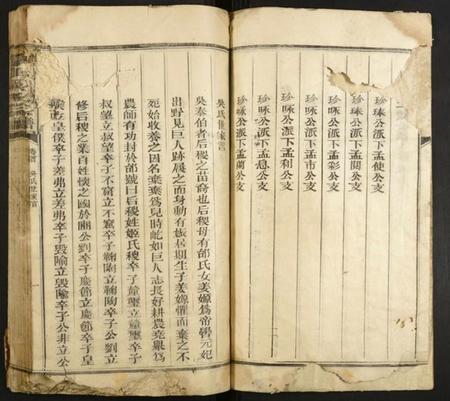 珍珠公派下孟使公支
珍咏公派下孟關公支
珍咏公派下孟彩公支
珍咏公派下孟市公支
珍咏公派下孟利公支
珍咏公派下孟息公支
珍咏公派下孟蘭公支
吳氏世家言
吳泰伯者后稷之苗裔也后稷母有邰氏女姜嫄爲帝嚳元妃
出野見巨人跡履之而身動有娠居期生子姜嫄懼而棄之不
死始收養之因名棄棄爲兒時屹如巨人志長好耕農堯舉爲
農師有功封於邰號曰后稷姓姬氏稷卒子
叔望立叔望卒子不窋立不窋卒子鞠陶立鞠陶卒子公劉立
修后稷之業百姓懷之國於豳公劉卒子慶節立慶節卒子皇
僕立皇僕卒子差弗立差弗卒子毀隃立毀隃卒子公非立公
吳氏世家言